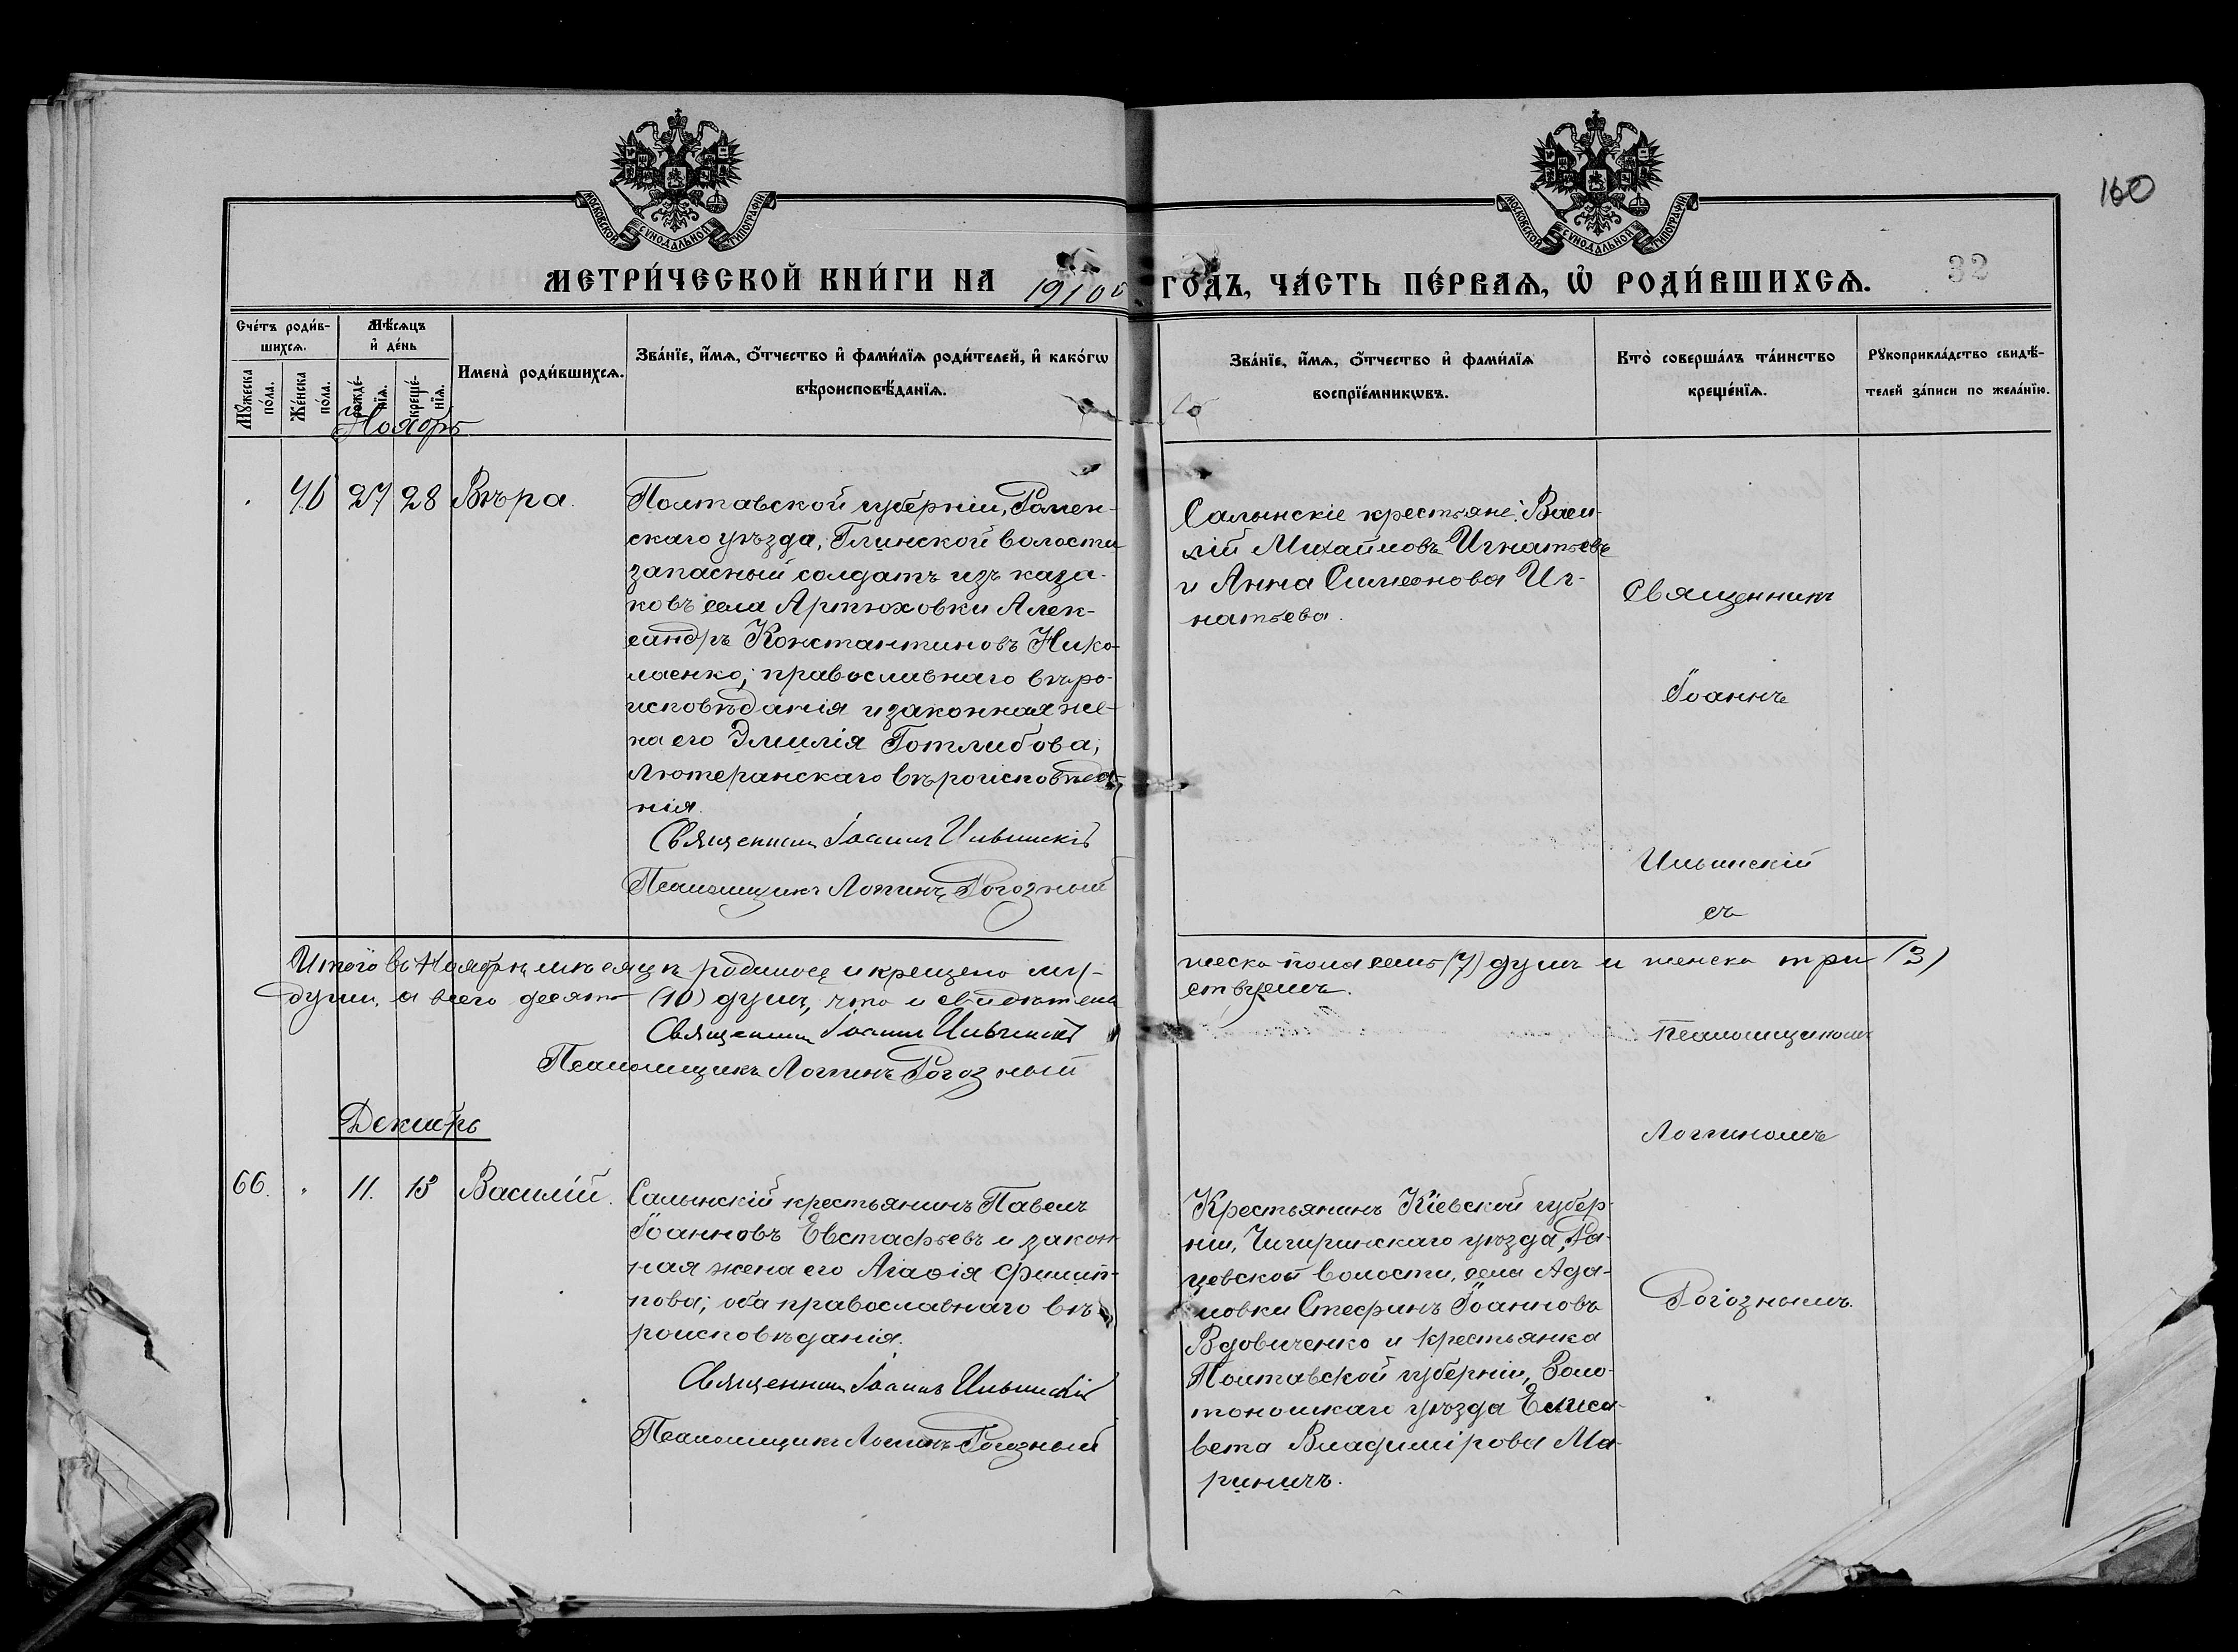 160
МОСКОВСКОЙ СУНОДАЛЬНОЙ ТИПОГРАФІИ
МОСКОВСКОЙ СУНОДАЛЬНОЙ ТИПОГРАФІИ
МЕТРИ́ЧЕСКОЙ КНИ́ГИ НА 1910й ГО́ДЪ, ЧА́СТЬ ПЕ́РВАѦ, Ѡ҆ РОДИ́ВШИХСѦ.
32
Сче́тъ роди́в-
шихсѧ.
Мꙋ́жеска по́ла.
Же́нска по́ла.
Мѣ́сѧцъ
и҆ де́нь
рожде́-
нїѧ.
креще́-
нїѧ.
Имена̀ роди́вшихсѧ.
Зва́нїе, и҆́мѧ, ѻ҆́тчество и҆ фами́лїѧ роди́телей, и҆ како́гѡ
вѣроисповѣ́данїѧ.
Зва́нїе, и҆́мѧ, ѻ҆́тчество и҆ фами́лїѧ
воспрїе́мникѡвъ.
Кто̀ соверша́лъ та́инство
креще́нїѧ.
Рꙋкоприкла́дство свидѣ́-
телей за́писи по жела́нїю.
Ноябрь
46 27 28 Вѣра.
Полтавской губерніи, Ромен-
скаго уѣзда, Глинской волости
запасный солдатъ изъ каза-
ковъ села Артюховки Алек-
сандръ Константиновъ Нико-
лаенко; православнаго вѣро-
исповѣданія и законная же-
на его Эмилія Готлибова,
лютеранскаго вѣроисповѣда-
нія.
Священникъ Іоаннъ Ильинскій
Псаломщикъ Логинъ Рогозный
Салынскіе крестьяне: Васи-
лій Михайловъ Игнатьевъ
и Анна Симеонова Иг-
натьева.
Священникъ
Іоаннъ
Ильинскій
съ
Итого въ Ноябрѣ мѣсяцѣ родилось и крещено му-
жеска пола семь (7) душъ и женска три (3)
души, а всего десять (10) душъ, что и свидѣтель
ствуемъ.
Священникъ Іоаннъ Ильинскій
Псаломщикъ Логинъ Рогозный
псаломщикомъ
Логиномъ
Рогознымъ.
Декабрь
66. 11. 13 Василій.
Салынскій крестьянинъ Павелъ
Іоанновъ Евстафьевъ и закон
ная жена его Агаѳія Филип-
пова; оба православнаго вѣ-
роисповѣданія.
Священникъ Іоаннъ Ильинскій
Псаломщикъ Логинъ Рогозный
Крестьянинъ Кіевской губер-
ніи, Чигиринскаго уѣзда, Ра-
цевской волости, села Ада-
мовки Стефанъ Іоанновъ
Вдовиченко и крестьянка
Полтавской губерніи, Золо-
тоношскаго уѣзда Елиса-
вета Владимірова Ма-
риничъ.